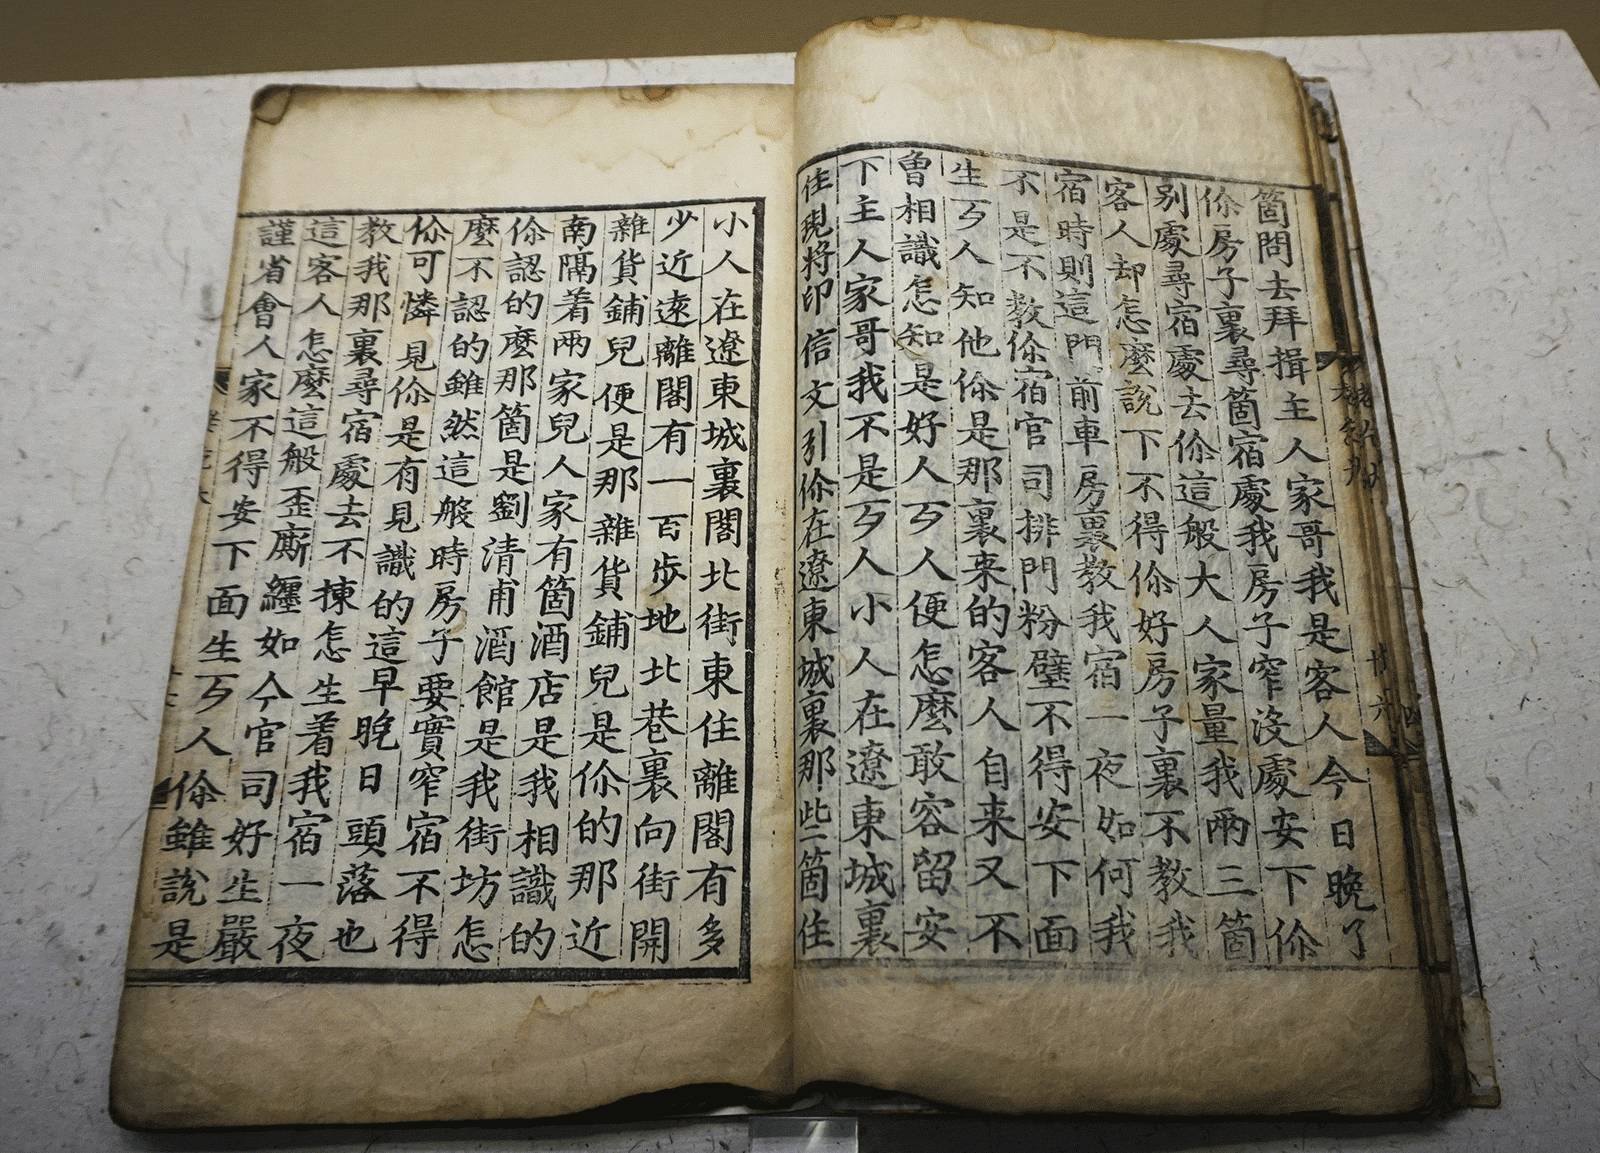 箇問去拜揖主人家哥我是客人今日晚了
你房子裏尋箇宿處我房子窄沒處安下你
别處尋宿處去你這般大人家量我兩三箇
客人却怎麽說下不得你好房子裏不教我
宿時則這門前車房裏教我宿一夜如何我
不是不教你宿官司排門粉壁不得安下面
生歹人知他你是那裏来的客人自来又不
曾相識怎知是好人歹人便怎麽敢容留安
下主人家哥我不是歹人小人在遼東城裏
住現將印信文引你在遼東城裏那些箇住
小人在遼東城裏閣北街東住離閣有多
少近遠離閣有一百步地北巷裏向街開
雜貨鋪兒便是那雜貨鋪兒是你的那近
南隔着兩家兒人家有箇酒店是我相識的
你認的麽那箇是劉清甫酒館是我街坊怎
麽不認的雖然這般時房子要實窄宿不得
你可憐見你是有見識的這早晚日頭落也
教我那裏尋宿處去不揀怎生着我宿一夜
這客人怎麽這般歪厮纏如今官司好生嚴
謹省會人家不得安下面生歹人你雖說是